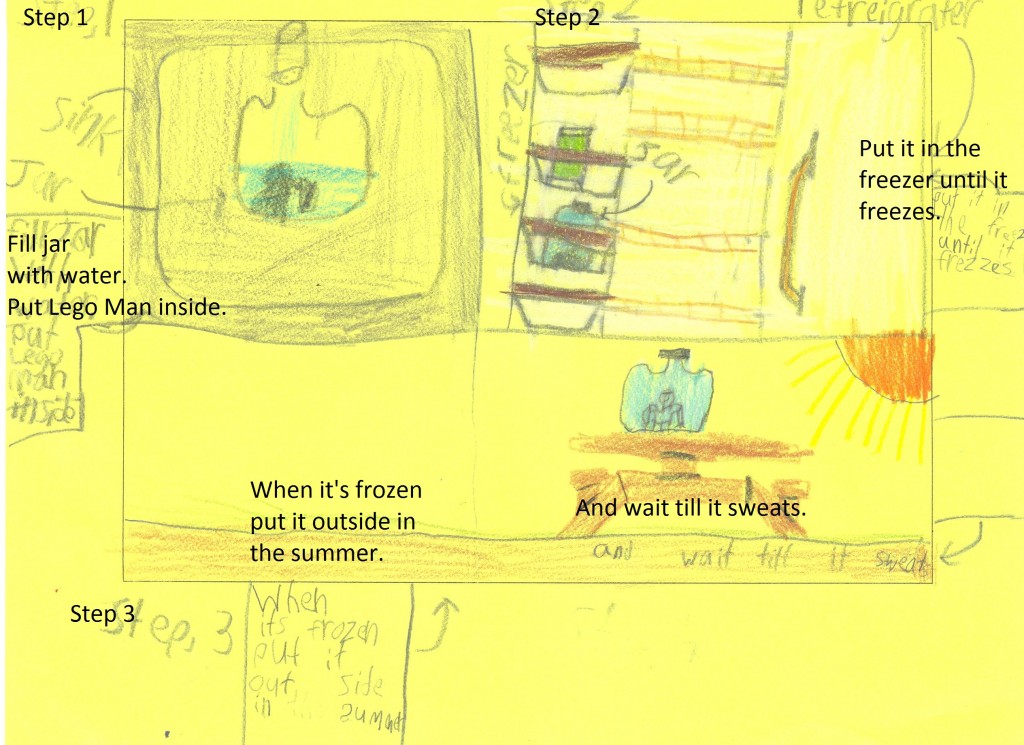 Step 1
Step 2
refreigrater
Sink
Jar
freezer
Jar
Put it in the
freezer until it
freezes.
put it in
the freez
until it
frezzes
Fill jar
with water.
Put Lego Man inside.
put
Lego
man
inside
When it's frozen
put it outside in
the summer.
And wait till it sweats.
and wait till it sweat
Step 3
Step, 3
When
its frozen
put it
out side
in summer